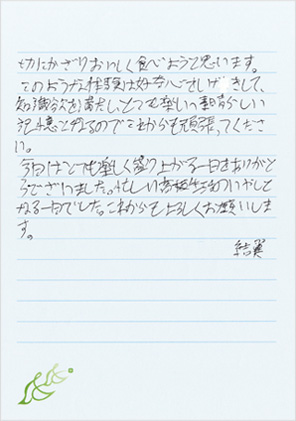 切にかぎりおいしく食べようと思います。
このような体験は好奇心をしげきして、
知識欲を満たしとても楽しい素晴らしい
記憶となるのでこれからも頑張ってくださ
い。
今日はとても楽しく盛り上がる一日をありがと
うございました。忙しい高校生活のいやしと
なる一日でした。これからも上ろしくお願いしま
す。
結翼